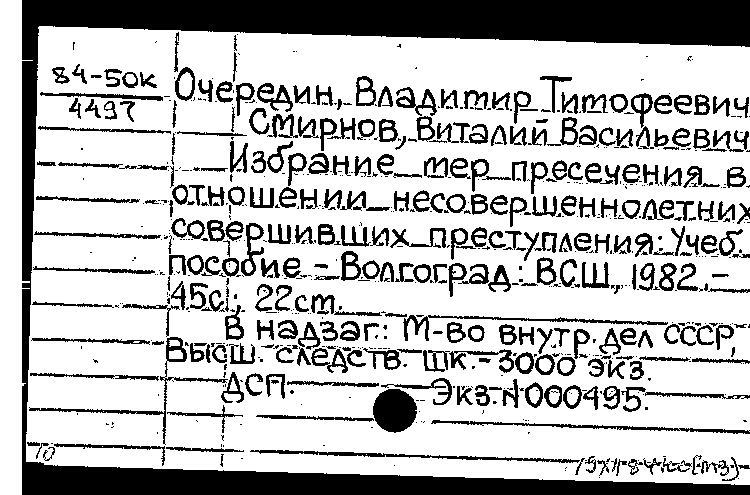 84-50к
4497
Очередин, Владимир Тимофеевич
Смирнов, Виталий Васильевич
Избрание мер пресечения в
отношении несовершеннолетних
совершивших преступления: Учеб.
пособие - Волгоград: ВСШ, 1982.-
45с.; 22см.
В надзаг.: М-во внутр. дел СССР,
Высш. следств. шк. - 3000 экз.
ДСП. Экз. N000495.
10